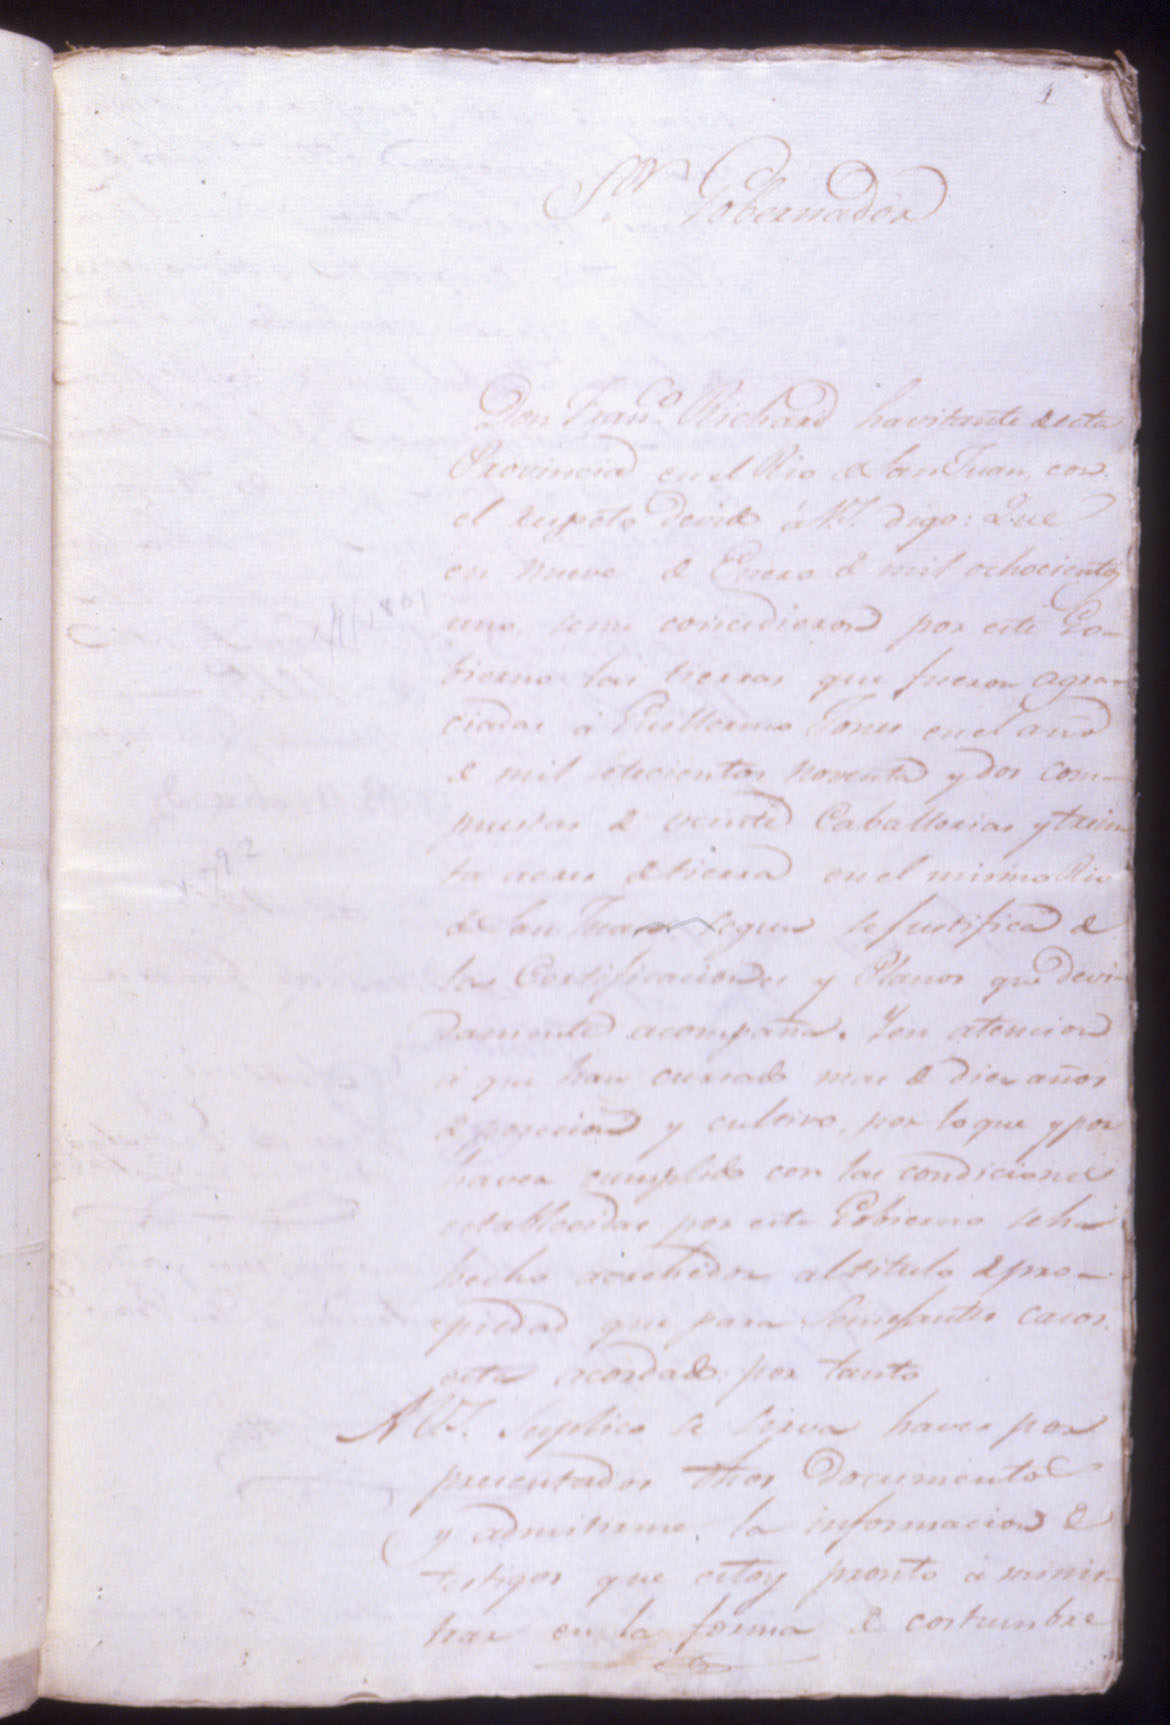 1
S.or Gobernador
Don Fran.co Richard havitante de esta
Provincia en el Rio de San Juan, con
el respeto devido á V.S. digo: Que
en nueve de Enero de mil ochocientos
uno, seme concedieron por este Go-
bierno las tierras que fueron agra-
ciadas á Guillermo Jones en el año
de mil setecientos noventa y dos com-
puestas de veinte Caballerias y trein-
ta acres de tierra en el mismo Rio
de San Juan segun se justifica de
las Certificaciones y Planos que devi-
damente acompaña. Y en atencion
á que han cursado mas de diez años
de posecion y cultivo, por lo que y por
haver cumplido con las condiciones
establecidas por este Gobierno se ha
hecho acrehedor al titulo de pro-
piedad que para semejantes casos
esta acordado: por tanto
A V.S. Suplico se sirva haver por
presentados dhos documentos
y admitirme la informacion de
testigos que estoy pronto á minis-
trar en la forma de costumbre